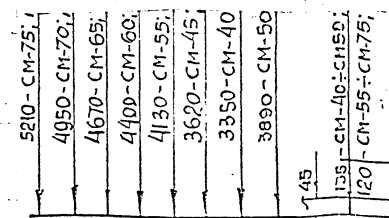 5210-СМ-75;
4950-СМ-70;
4670-СМ-65;
4400-СМ-60;
4130-СМ-55;
3620-СМ-45;
3350-СМ-40
3890-СМ-50
45
135-СМ-40÷СМ50;
120-СМ-55÷СМ-75;